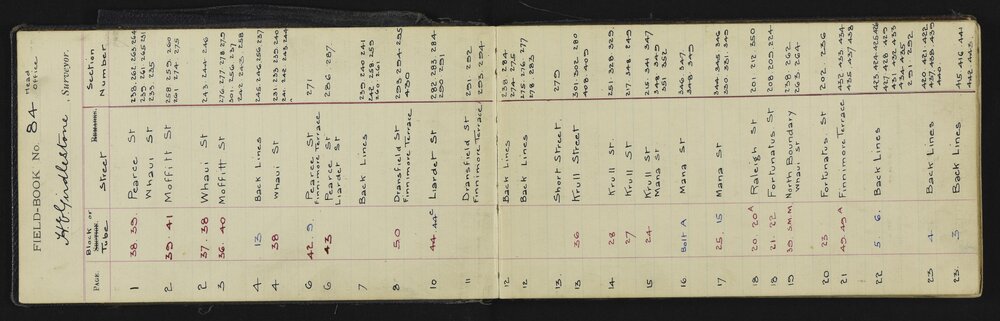 FIELD-BOOK No. 84 Head Office
H E Girdlestone, Surveyor.
PAGE. Block or Section Tube Street Remarks. Section Number
1 38 39. Pearce St 238. 261. 263. 264
Whaui St 239. 261. 265. 231
233. 235
2 39 41 Moffitt St 258. 259. 260
261. 274. 275
2 37. 38 Whaui St 243. 244. 246
3 36. 40 Moffitt St 276. 277. 278. 279
301. 256. 237
242. 243. 258
4 13 Back Lines 245. 246. 256. 237
4 38 Whaui St 231. 233. 239. 240
241. 242. 243. 244
6 42. 9. Pearce St 271
Finnimore Terrace
6 43 Pearce St 286. 287
Lardet St
7 Back Lines 239. 240. 241
242. 258. 259
260. 261
8 50 Dransfield St 293. 294. 295
Finnimore Terrace 490
10 44. 44c Liardet St 282. 283. 284.
290. 291
11 Dransfield St 291. 292.
Finnimore Terrace. 293. 294.
12 Back Lines 238. 284.
274. 275.
12 Back Lines 275. 276. 277
278. 283.
13. Short Street. 279
13 36 Krull Street. 301. 302. 280
408. 409.
14. 28 Krull St 251. 328. 329.
14 27 Krull St 217. 348. 249
15 24. Krull St 215. 341. 347
Mana St 348. 349
351. 352
16 Bolt A Mana St 346. 347.
348. 349
17 25. 15 Mana St 344. 345. 346
349. 350
18 20. 20A Raleigh St 201. 212. 350
18 21. 22 Fortunatus St 208. 209. 224.
19 39. S.M.M. North Boundary 238. 262.
Whaui St 263. 264
20 23 Fortunatus St 202. 236
21 49. 49A Finnimore Terrace 452. 453. 454
455. 457. 458
22 5. 6. Back Lines 423. 424. 425. 426
427. 428. 429
431. 432. 433
434. 435
23 4. Back Lines 429. 430. 422
437. 438. 439.
440.
23. 3 Back Lines 415. 416. 441
442. 443.